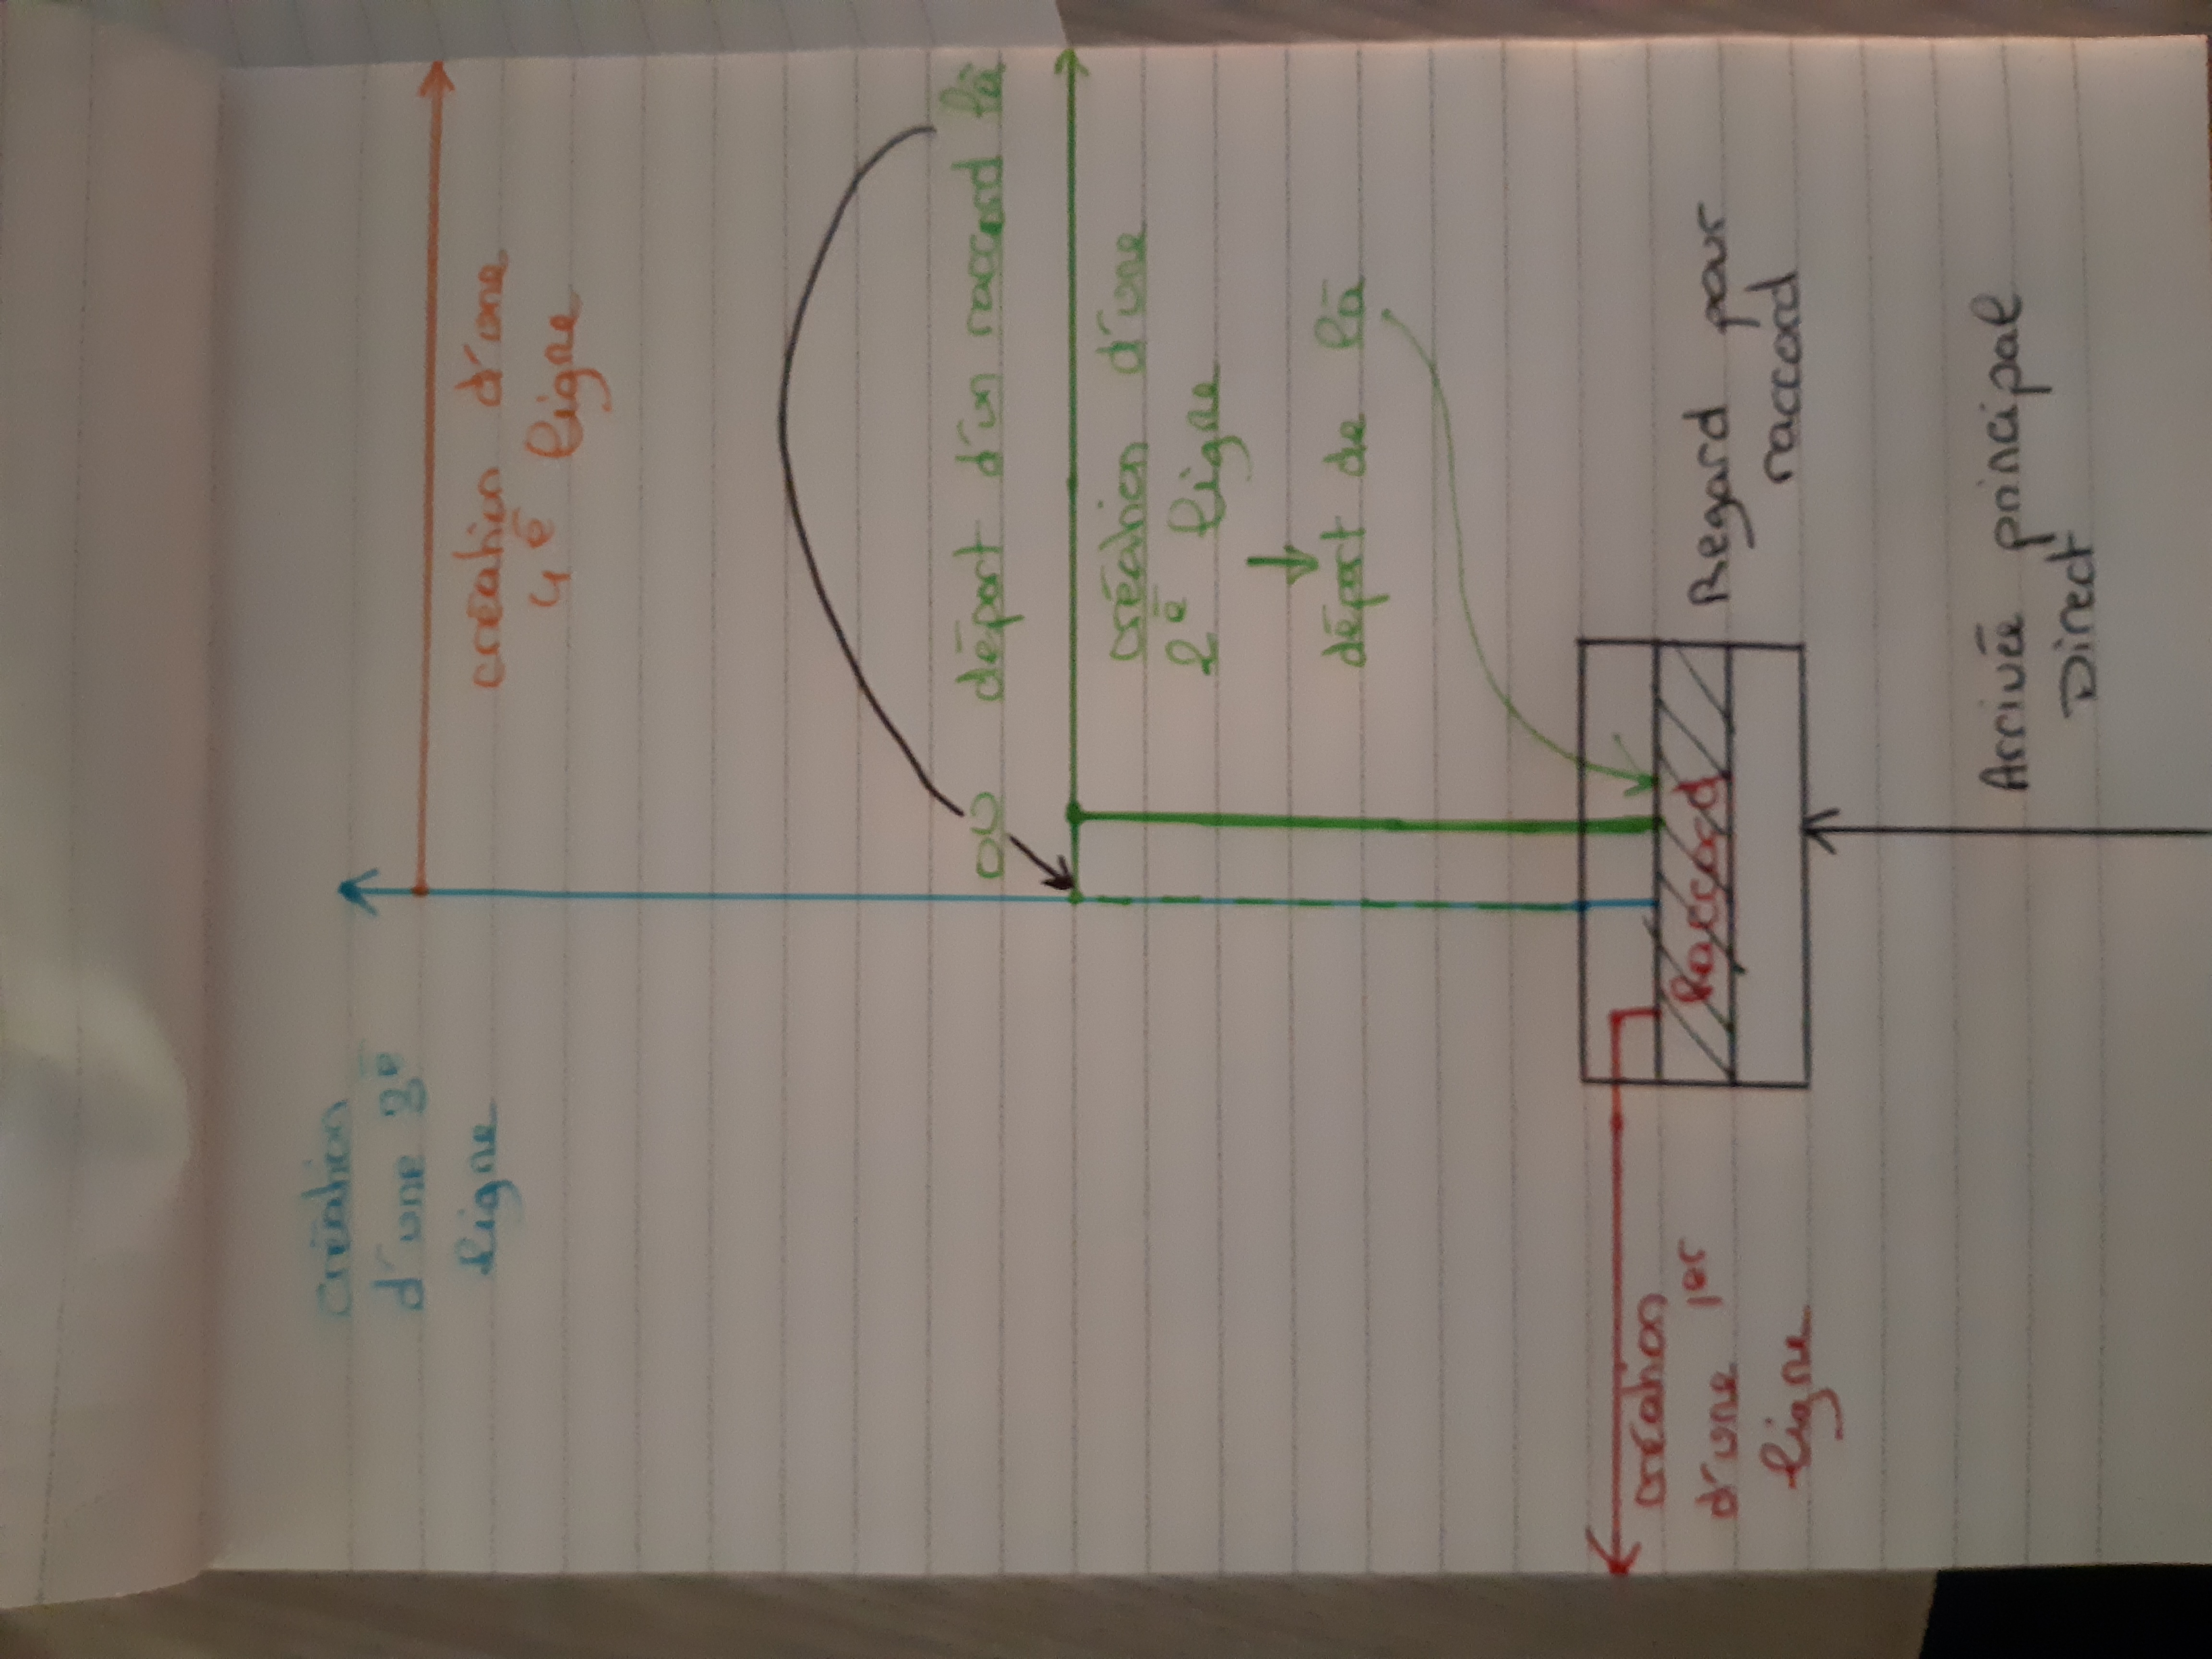 création
d'une 3e
ligne
création d'une
4e ligne
ou départ d'un raccord là
création d'une
2e ligne
départ de là
Raccord
Regard pour
raccord
création
d'une 1er
ligne
Arrivée principal
Direct